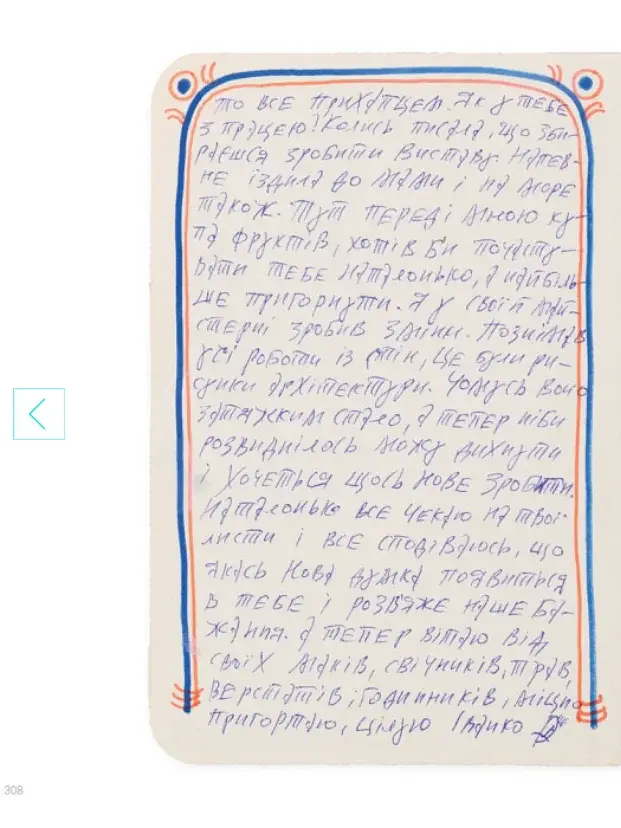 то все прихатцем. Як у тебе
з працею? Колись писала, що зби-
раєшся зробити виставу. Напев-
не їздила до мами і на море
також. Тут переді мною ку-
па фруктів, хотів би почасту-
вати тебе Наталонько, а найбіль-
ше пригорнути. Я у своїй май-
стерні зробив зміни. Познімав
усі роботи із стін, це були ри-
сунки архітектури. Чомусь воно
затяжким стало, а тепер ніби
розвиднілось можу дихнути
і хочеться щось нове зробити.
Наталонько все чекаю на твої
листи і все сподіваюсь, що
якась нова думка появиться
в тебе і розвяже наше ба-
жання. А тепер вітаю від
своїх маків, свічників, трав,
верстатів, годинників, міцно
пригортаю, цілую Іванко
308